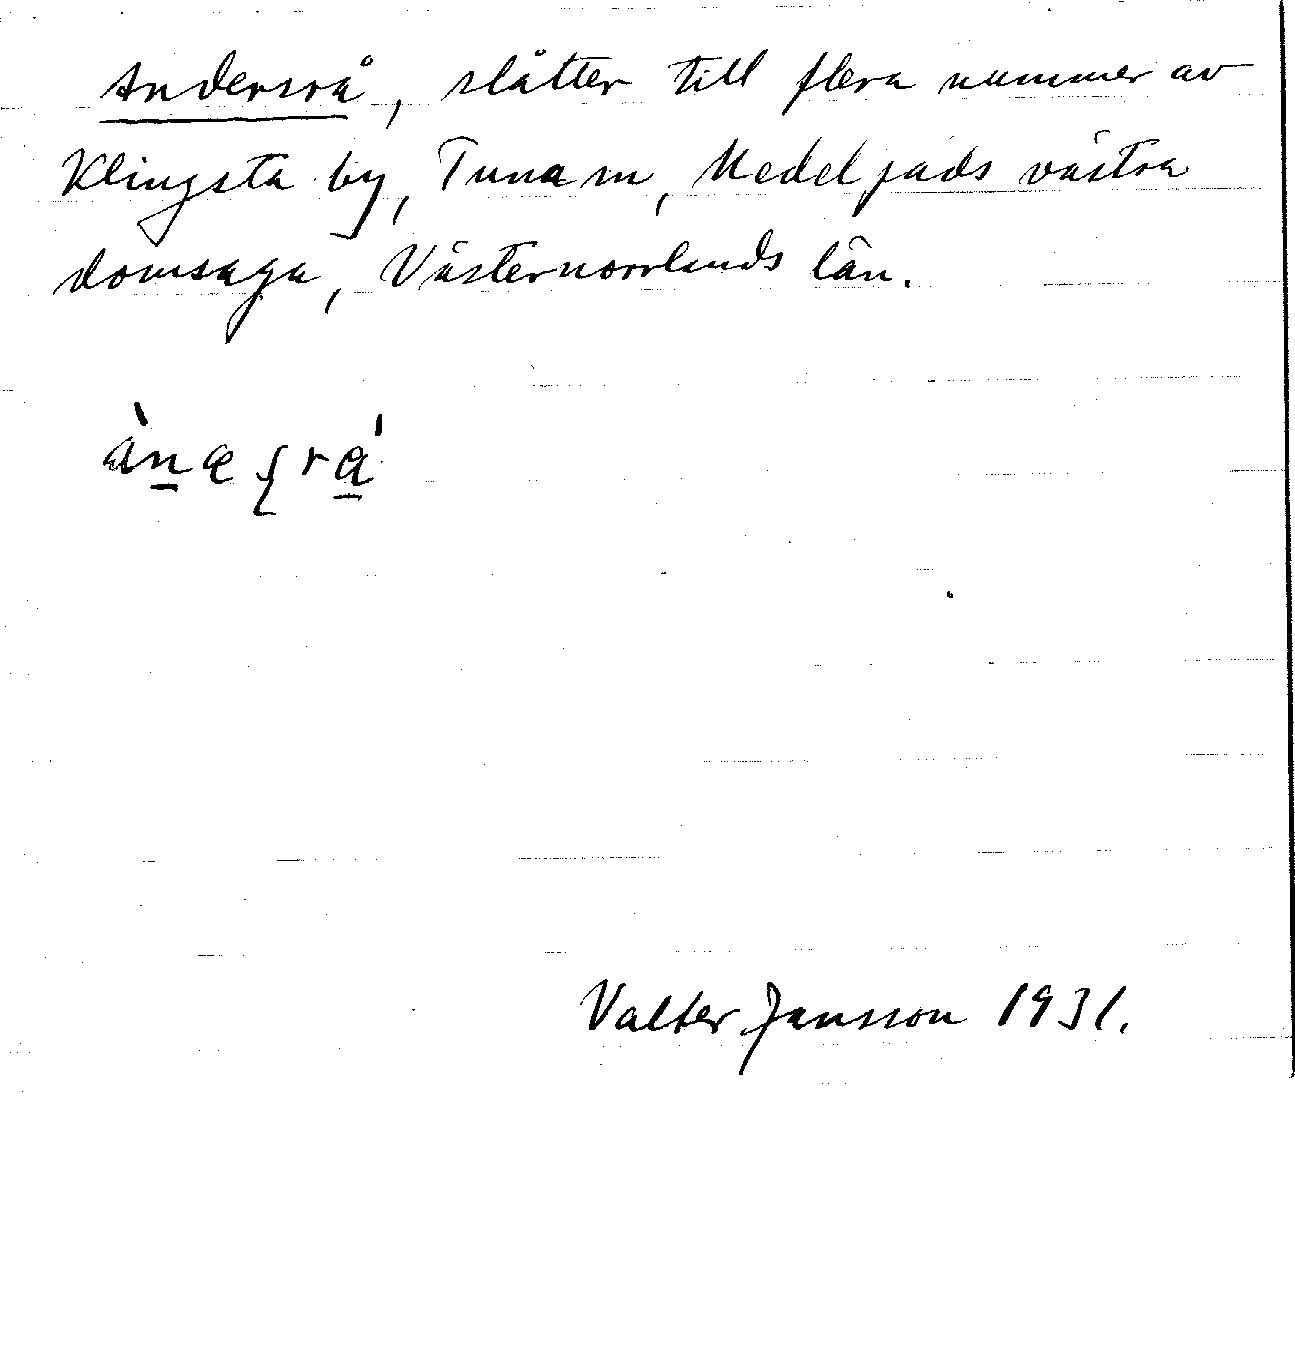 Andersrå, slåtter till flera nummer av
Klingsta by, Tuna sn, Medelpads västra
domsaga, Västernorrlands län.
Valter Jansson 1931.